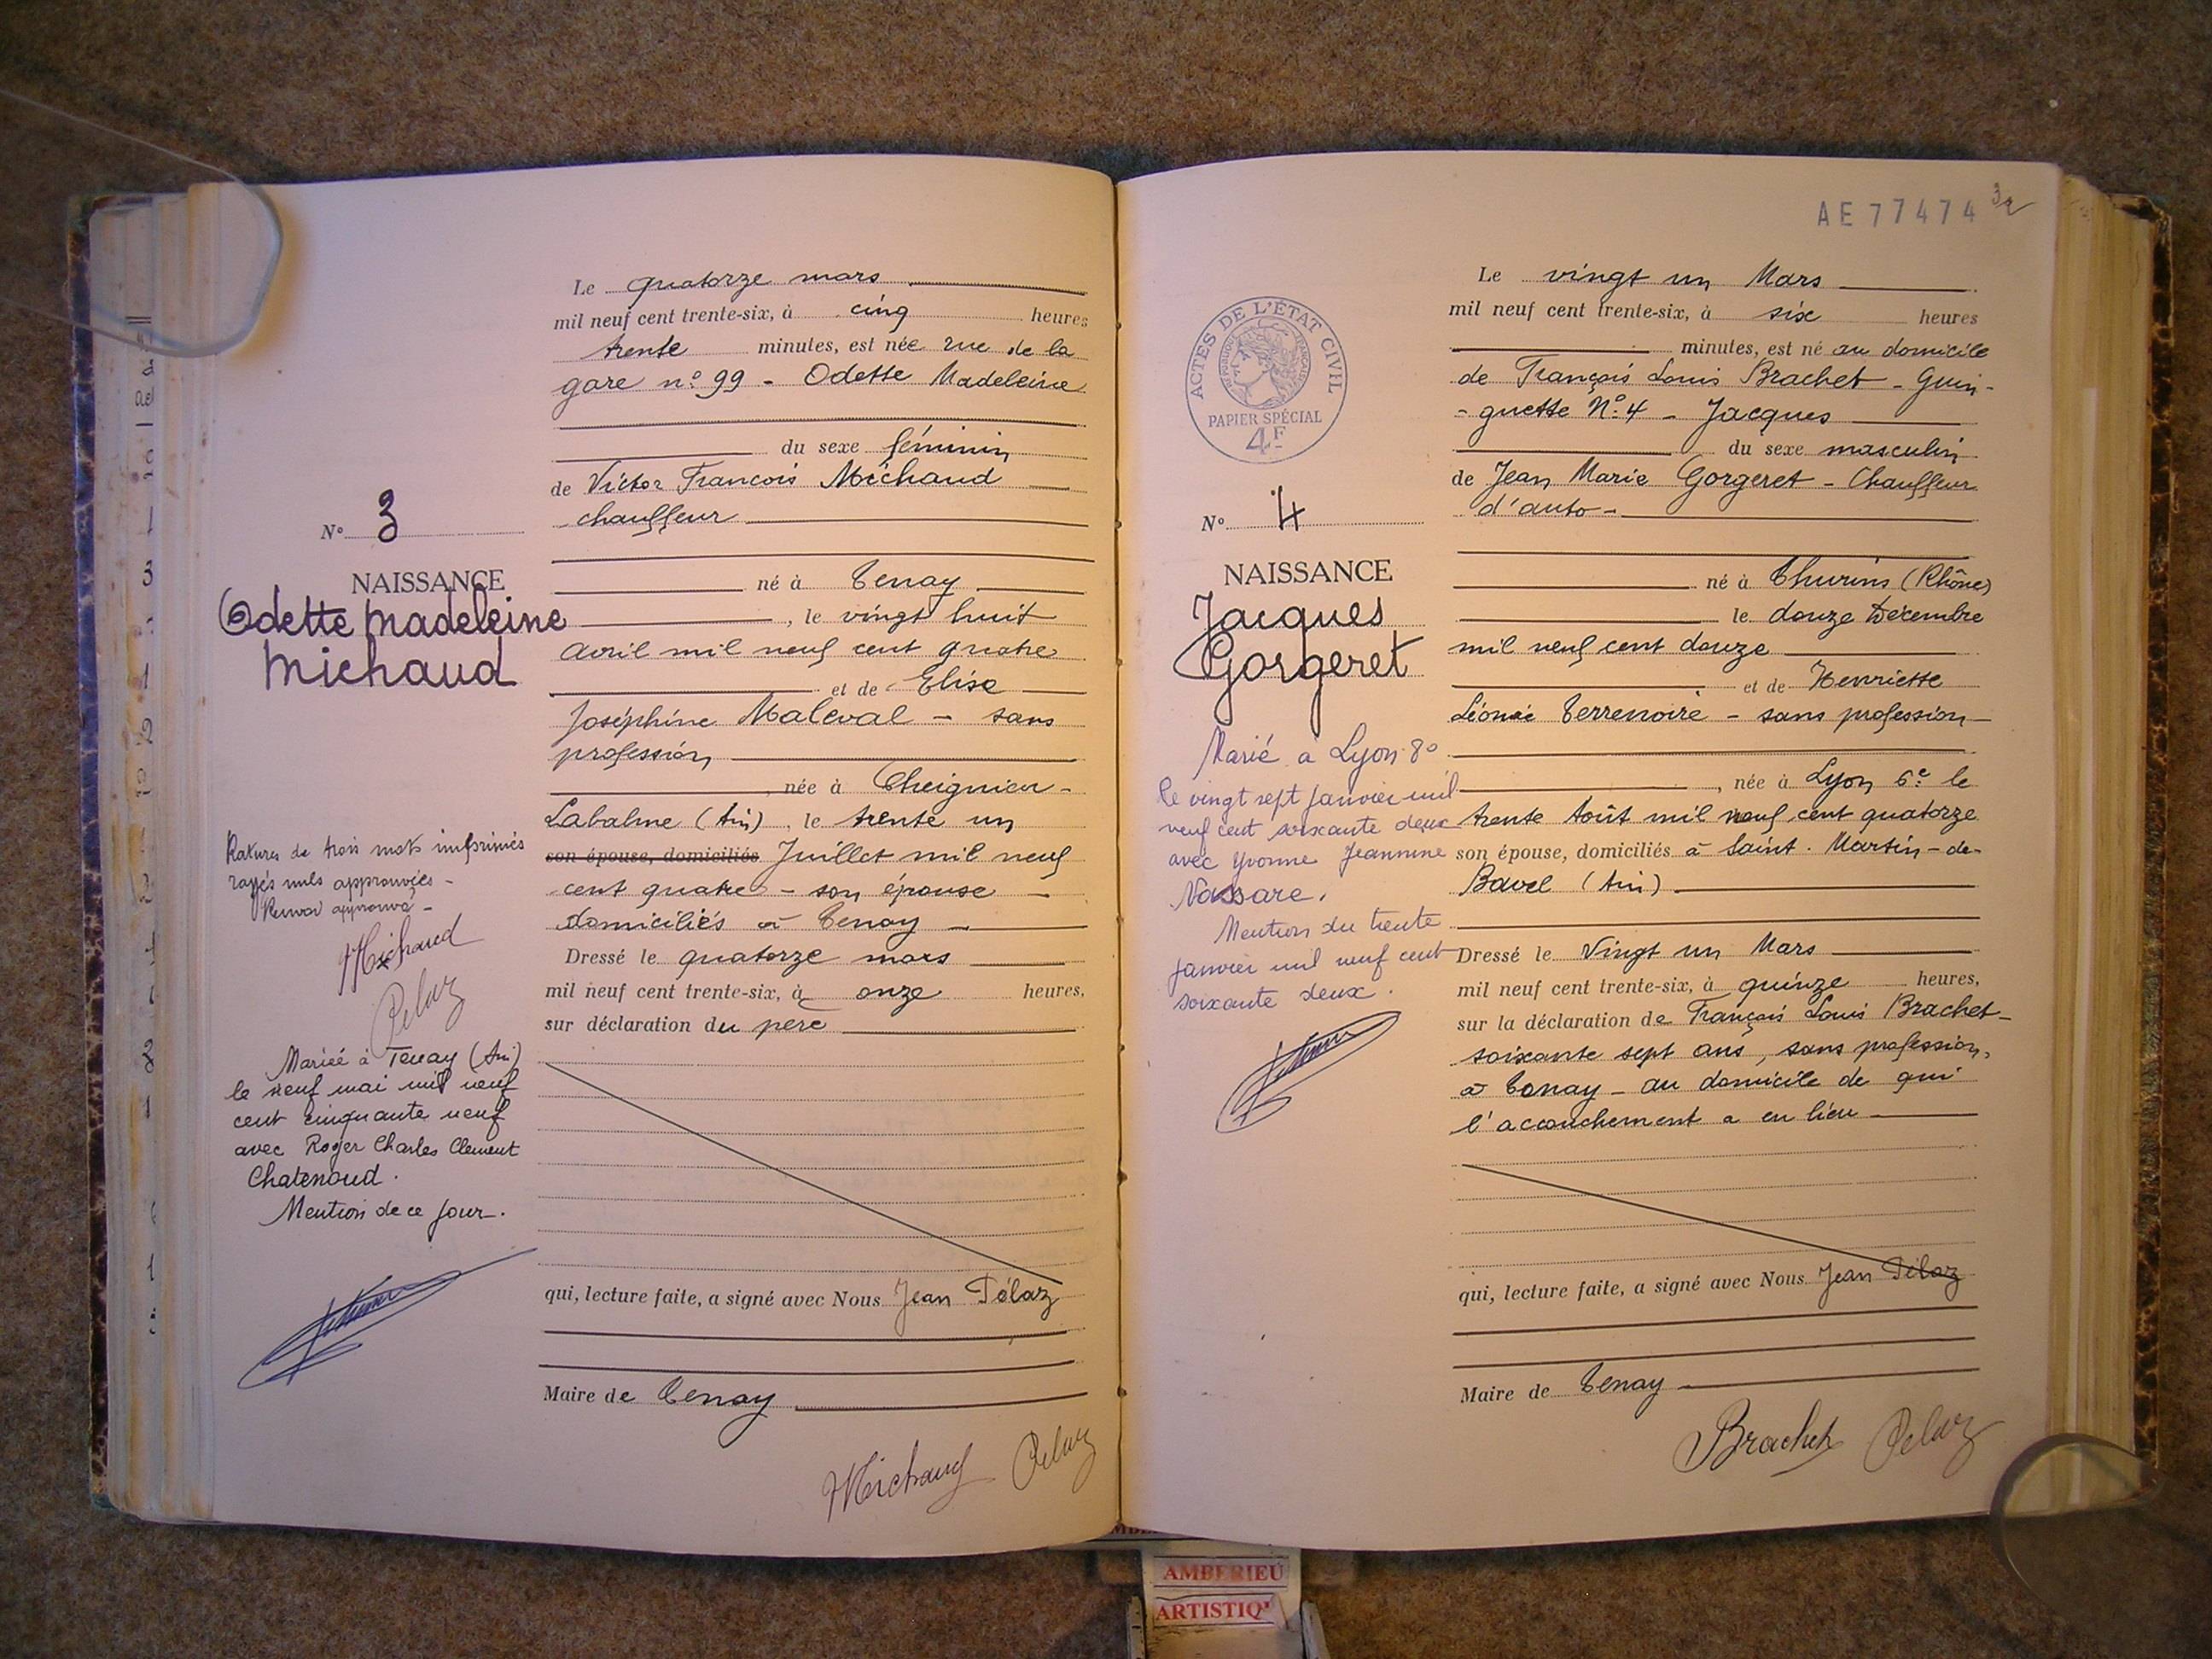 Le quatorze mars
mil neuf cent trente-six, à cinq heures
trente minutes, est née rue de la
gare n° 99 - Odette Madeleine
du sexe féminin
de Victor François Michaud
chauffeur
N° 3
NAISSANCE
Odette Madeleine
Michaud
né à Tenay
, le vingt huit
avril mil neuf cent quatre
et de Elise
Joséphine Maleval - sans
profession
née à Cheignieu-
Labalme (Ain), le trente un
son épouse, domiciliés Juillet mil neuf
cent quatre - son épouse
domiciliés à Tenay
Dressé le quatorze mars
mil neuf cent trente-six, à onze heures,
sur déclaration du père
qui, lecture faite, a signé avec Nous Jean Pélaz
Maire de Tenay
Michaud Pelaz
Ratures de trois mots imprimés
rayés nuls approuvées -
approuvé -
Michaud
Pelaz
Mariée à Tenay (Ain)
le neuf mai mil neuf
cent cinquante neuf
avec Roger Charles Clement
Chatenoud.
Mention de ce jour.
AE 77474
ACTES DE L'ÉTAT CIVIL
PAPIER SPÉCIAL
4F
Le vingt un Mars
mil neuf cent trente-six, à six heures
minutes, est né au domicile
de François Louis Brachet - Guin-
-guette N° 4 - Jacques
du sexe masculin
de Jean Marie Gorgeret - Chauffeur
d'auto -
N° 4
NAISSANCE
Jacques
Gorgeret
né à Thurins (Rhône)
le douze Décembre
mil neuf cent douze
et de Henriette
Léonie Terrenoire - sans profession
, née à Lyon 6e le
trente Août mil neuf cent quatorze
son épouse, domiciliés à Saint-Martin-de-
Bavel (Ain)
Dressé le Vingt un Mars
mil neuf cent trente-six, à quinze heures,
sur la déclaration de François Louis Brachet-
soixante sept ans, sans profession,
à Tenay - au domicile de qui
l'accouchement a eu lieu
qui, lecture faite, a signé avec Nous Jean Pélaz
Maire de Tenay
Brachet Pelaz
Marié à Lyon 8°
le vingt sept janvier mil
neuf cent soixante deux
avec Yvonne Jeannine
Nassare.
Mention du trente
janvier mil neuf cent
soixante deux.
AMBERIEU
ARTISTIQ